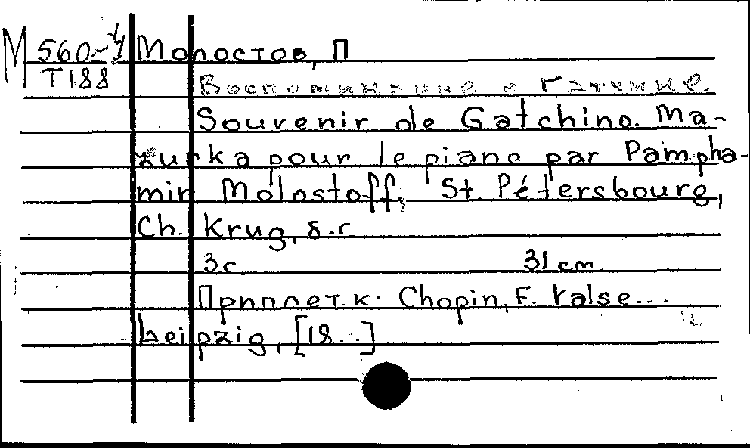 М 560-4 Молостов, П
T188
Воспоминание о Гатчине.
Souvenir de Gatchino. Ma-
zurka pour le piano par Pampha-
mir Molostoff. St. Pétersbourg,
Ch. Krug, б.г.
3 с 31 cm
Приплет. к: Chopin, F. Valse...
Leipzig, [18..]